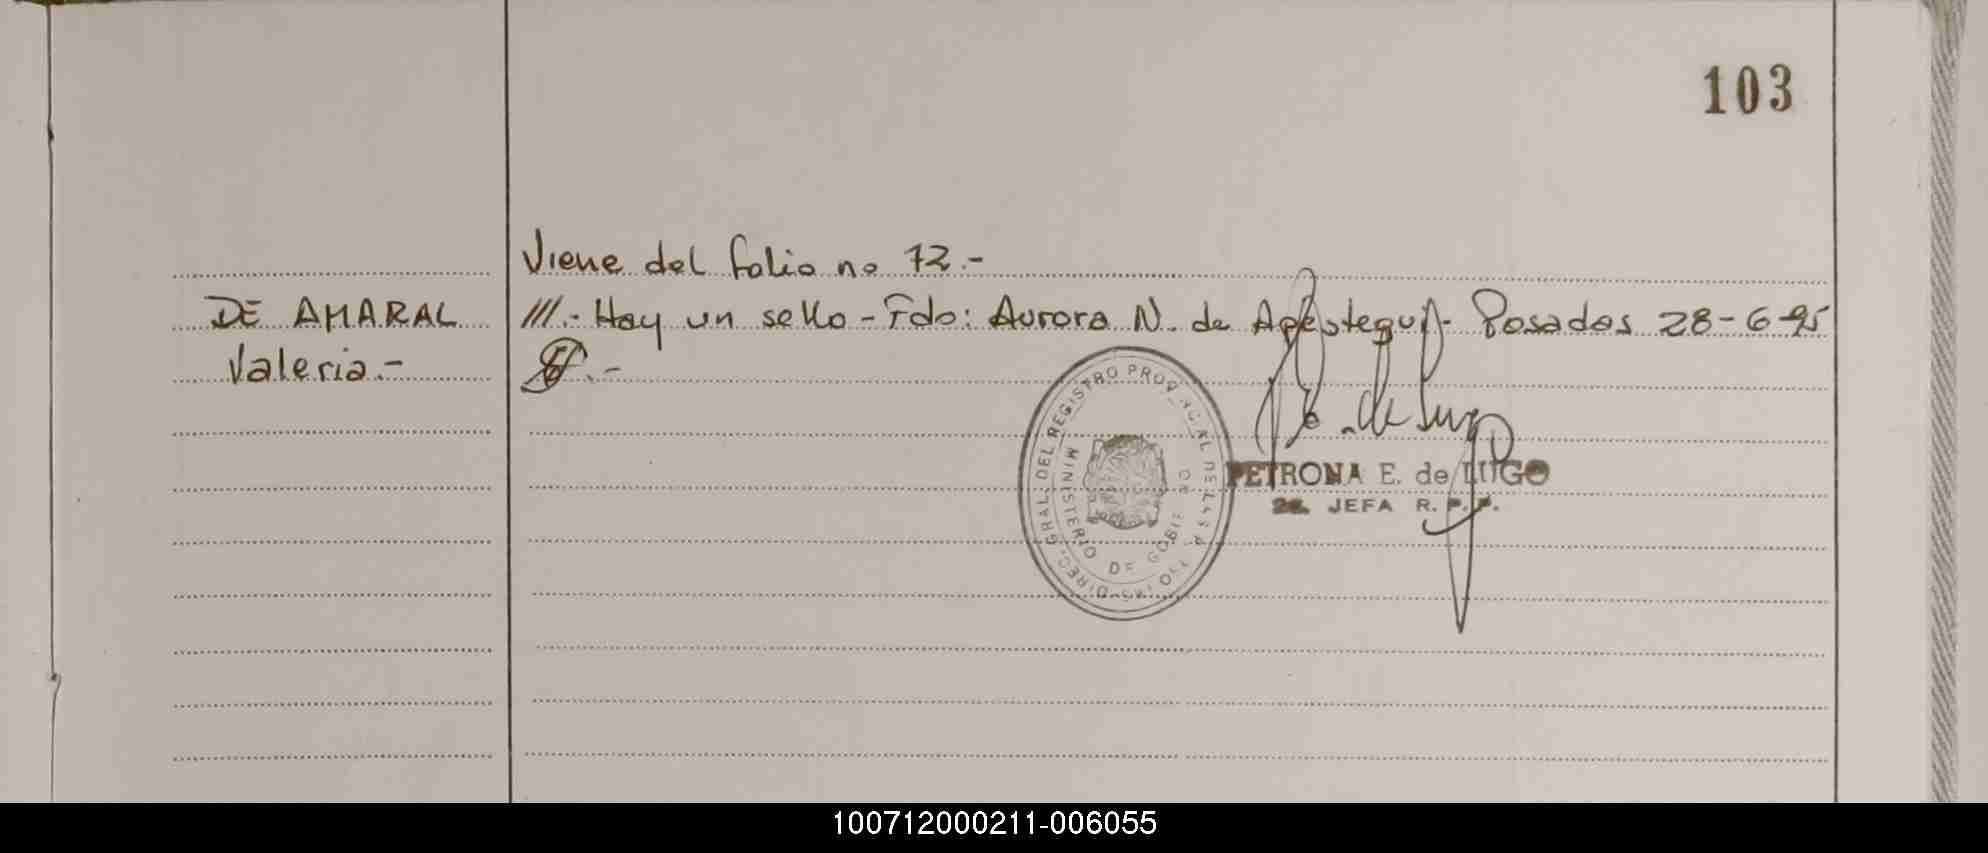 103
Viene del folio no 72.-
DE AMARAL
Valeria.-
///.- Hay un sello - Fdo: Aurora N. de Apestegui- Posadas 28-6-95
DIREC. GRAL. DEL REGISTRO PROVINCIAL DE LAS P
MINISTERIO DE GOBIERNO
PETRONA E. de LUGO
JEFA R. P. P.
100712000211-006055